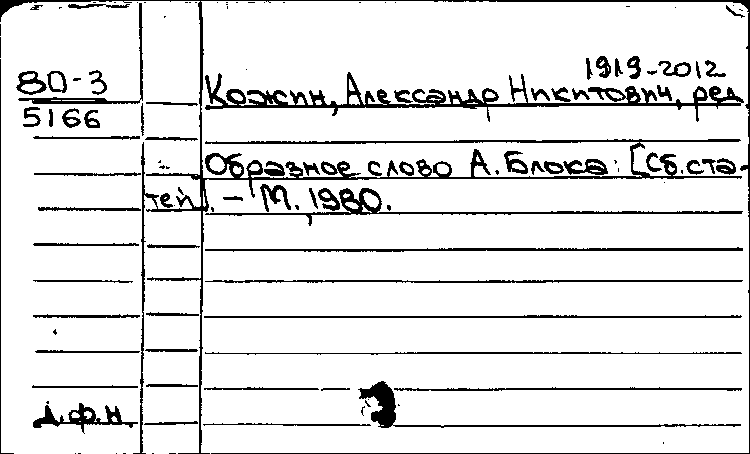 1919-2012
80-3
5166
Кожин, Александр Никитович, ред.
Образное слово А. Блока: [Сб. ста-
тей]. - М., 1980.
д.ф.н.